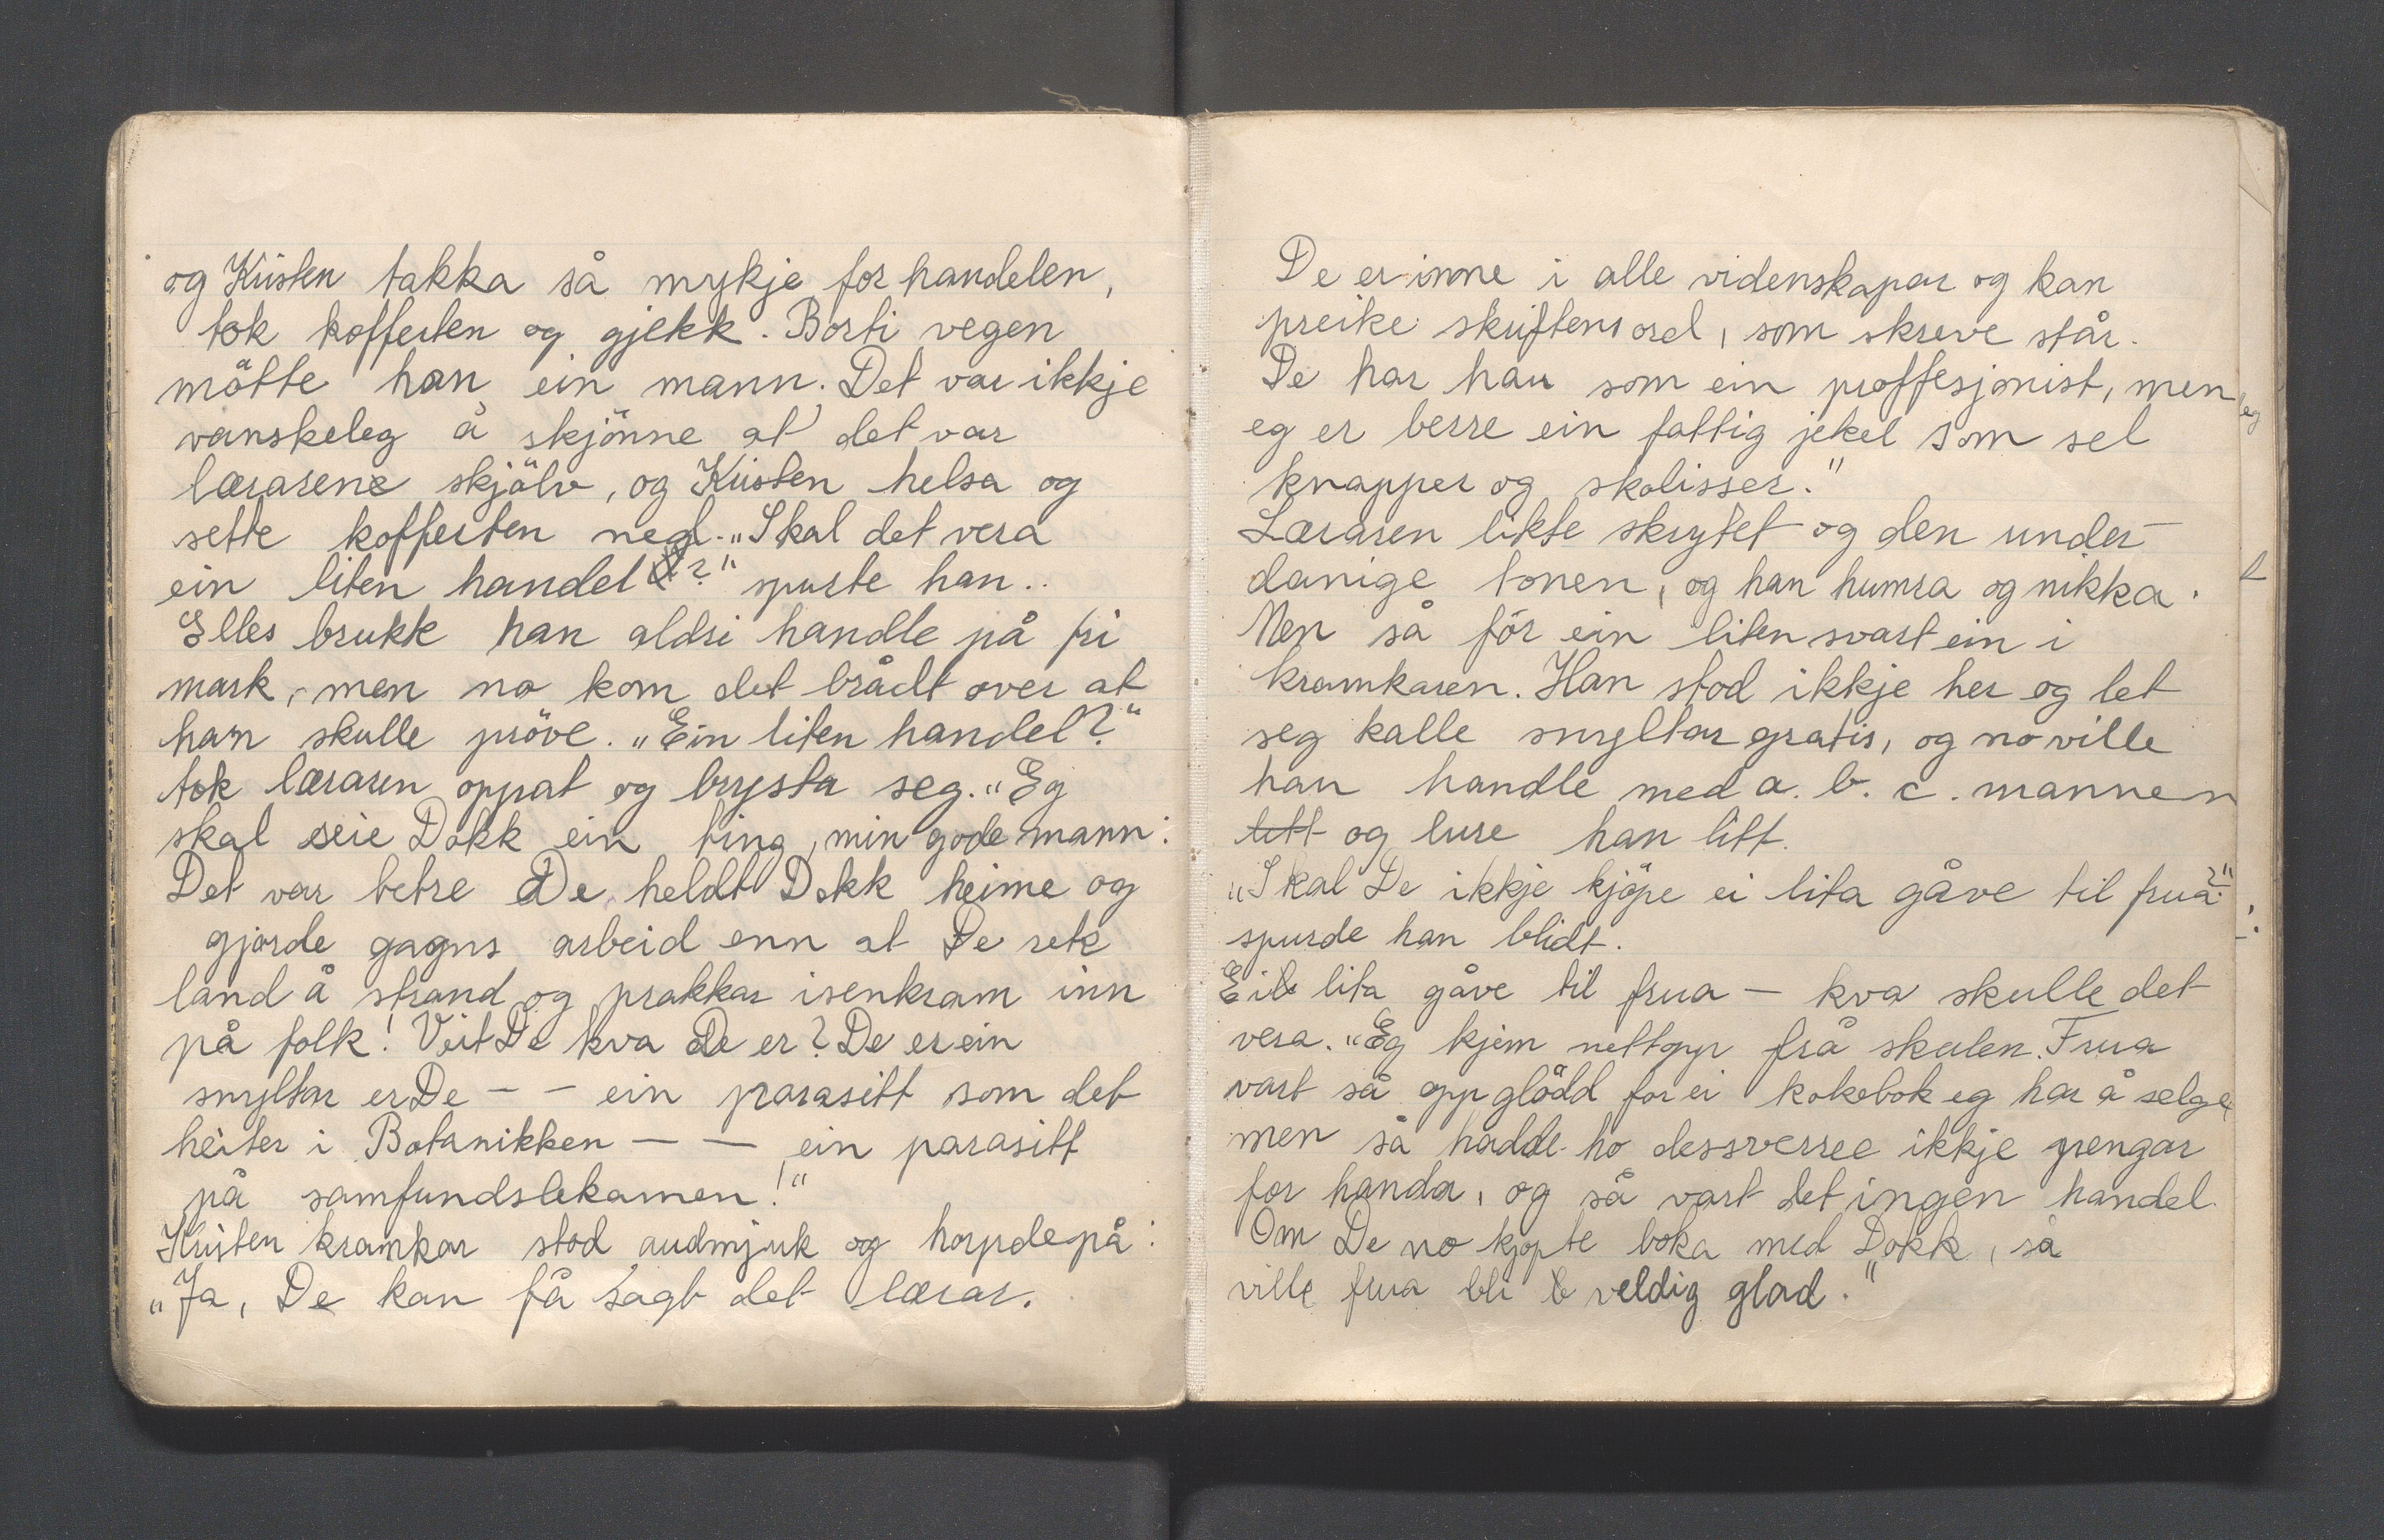 og Kristen takka så mykje for handelen,
tok kofferten og gjekk. Borti vegen
mötte han ein mann. Det var ikkje
vanskeleg å skjönne at det var
lærarene skjölv, og Kristen helsa og
sette kofferten ned. „Skal det vera
ein liten handel?" spurte han..
Elles brukk han aldri handle på fri
mark, men no kom det brådt over at
han skulle pröve. „Ein liten handel?"
tok læraren oppat og brysta seg. „Eg
skal seie Dokk ein ting, min gode mann:
Det var betre De heldt Dokk heime og
gjorde gagns arbeid enn at De rek
land å strand og prakkar isenkram inn
på folk! Veit De kva De er? De er ein
snyltar er De – – ein parasitt som det
heiter i Botanikken – – ein parasitt
på samfundslekamen!"
Kristen kramkar stod audmjuk og horpde på:
„Ja, De kan få sagt det lærar.
De er inne i alle videnskapar og kan
preike skriftens ord, som skreve står.
De har hau som ein proffesjonist, men
eg er berre ein fattig jekel som sel
knapper og skolisser."
Læraren likte skrytet og den under-
danige tonen, og han humra og nikka.
Men så fór ein liten svart ein i
kramkaren. Han stod ikkje her og let
seg kalle snyltar gratis, og no ville
han handle med a. b. c. mannen
litt og lure han litt.
„Skal De ikkje kjöpe ei lita gåve til frua?"
spurde han blidt.
Ei lita gåve til frua – kva skulle det
vera. „Eg kjem nettopp frå skulen. Frua
vart så oppglödd for ei kokebok eg har å selge,
men så hadde ho dessverree ikkje pengar
for handa, og så vart det ingen handel.
Om De no kjopte boka med Dokk, så
ville frua bli veldig glad."